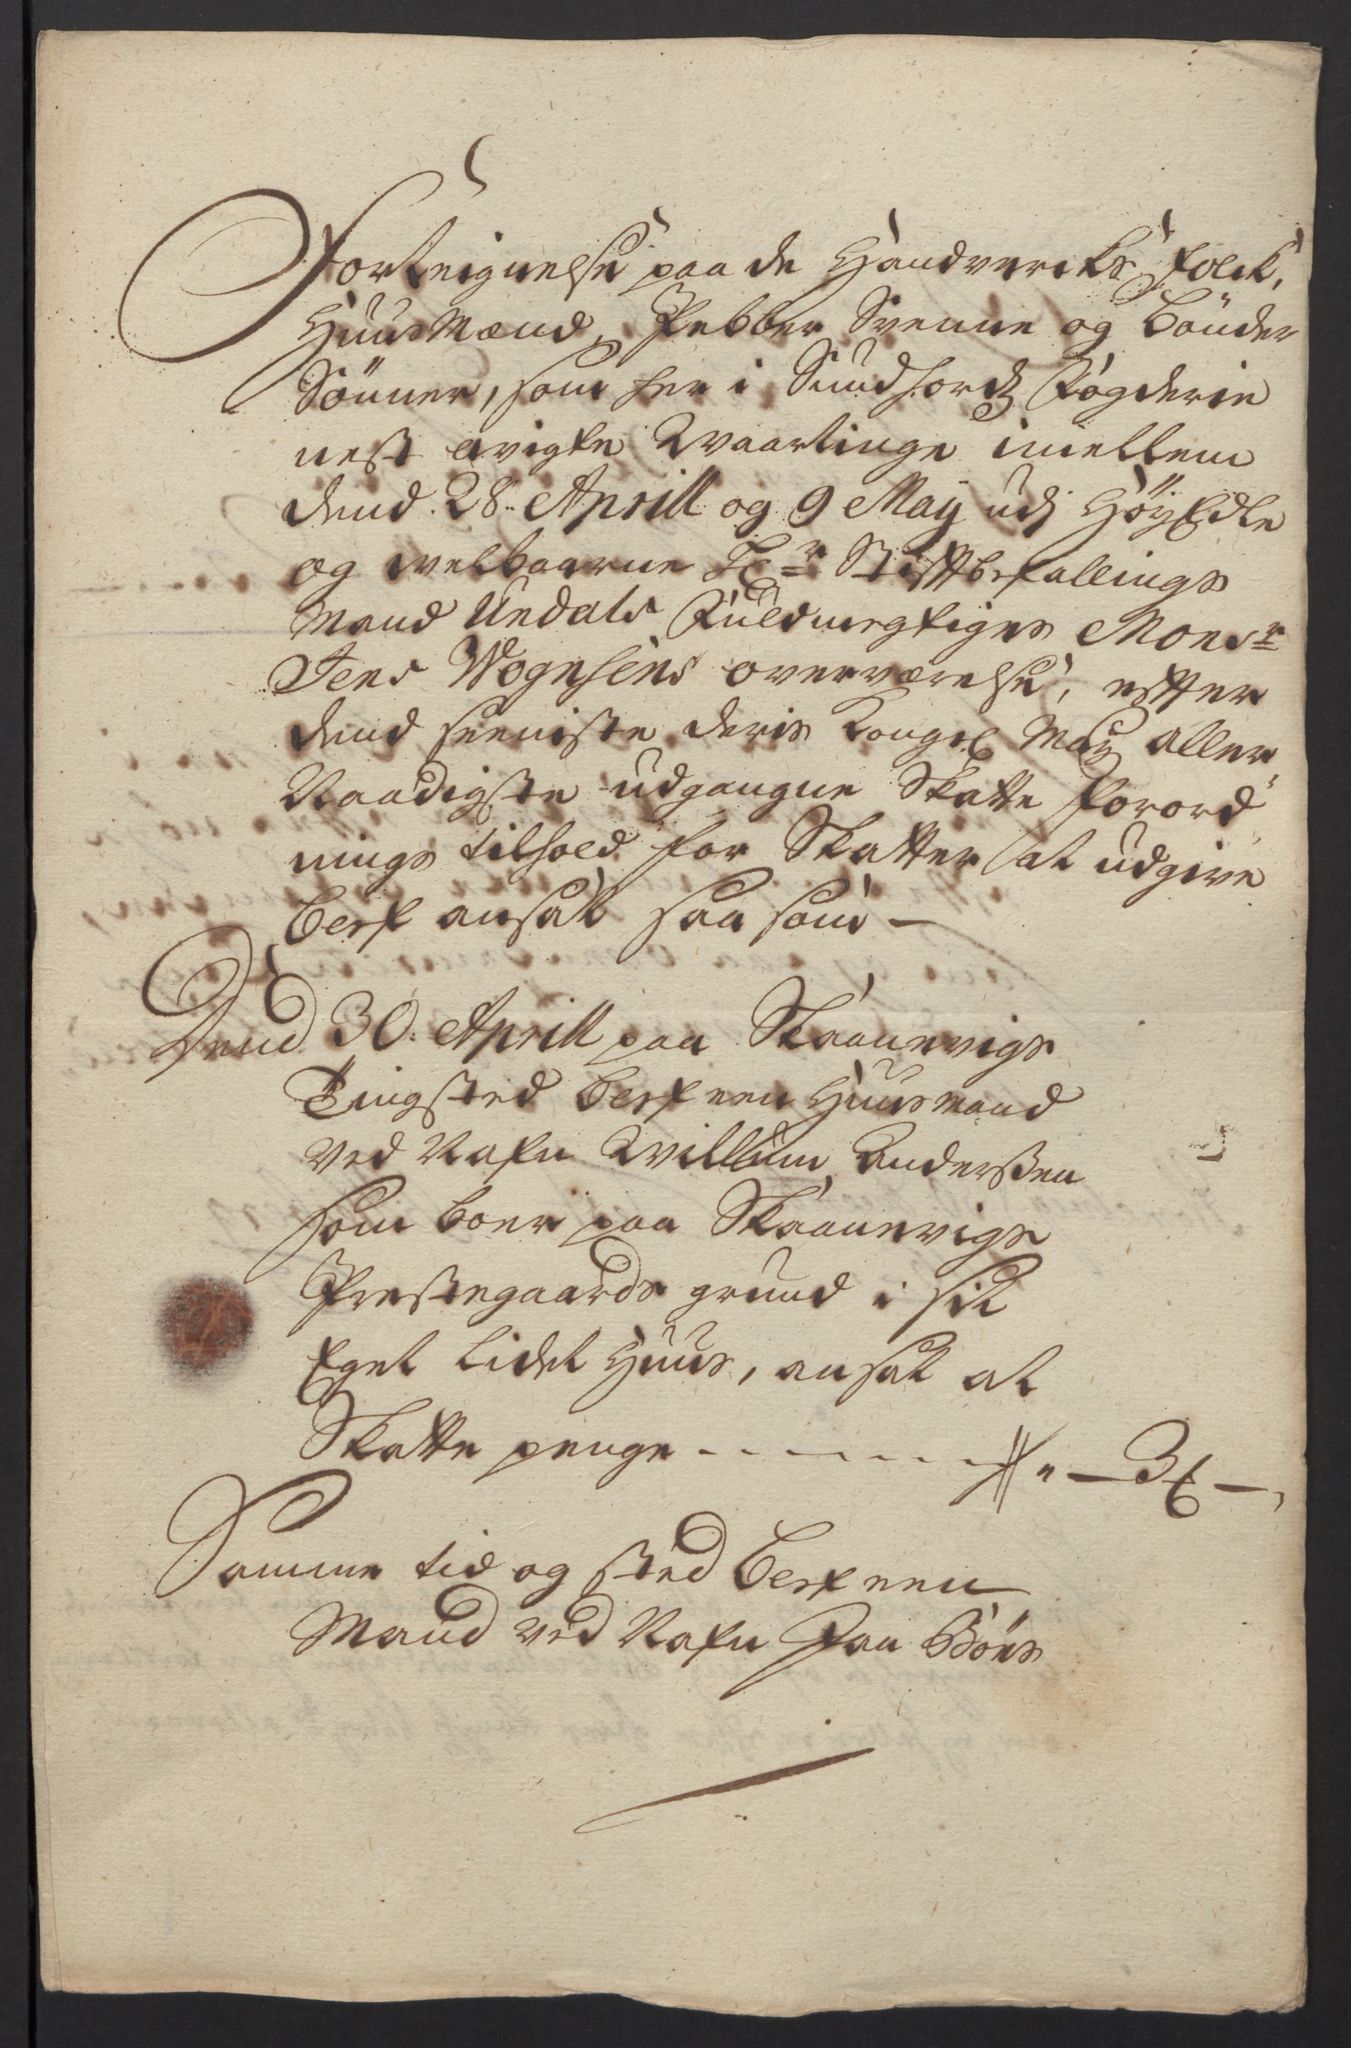 Forteignelse paa de Handvercks folck,
HuusMænd, Pebber Svenne og Bönder
Sönner, som her i Sundhord Fogderie
nest avigte Waartinge imellem
dend 28. Aprill og 9 May udj HöyEdle
og welbaarne Hr Stiftbefallings
Mand Undals Fuldmegtiges Monsr
Jens Wognsens overværelse, efter
dend seeniste deris Kongel May aller
Naadigste udgangne Skatte forord
nings tilhold for Skatter at udgive
blef ansat saa som —
Dend 30. Aprill paa Skaanevigs
Tingsted blef een Huusmand
ved Nafn Willum Anderssen
som boer paa Skaanevigs
Prestegaards grund i sit
Eget lidet Huus, ansat at
Skatte penge - - - - - - - - " — 3 —
Samme tid og sted blef een
Mand ved Nafn Paa Böes